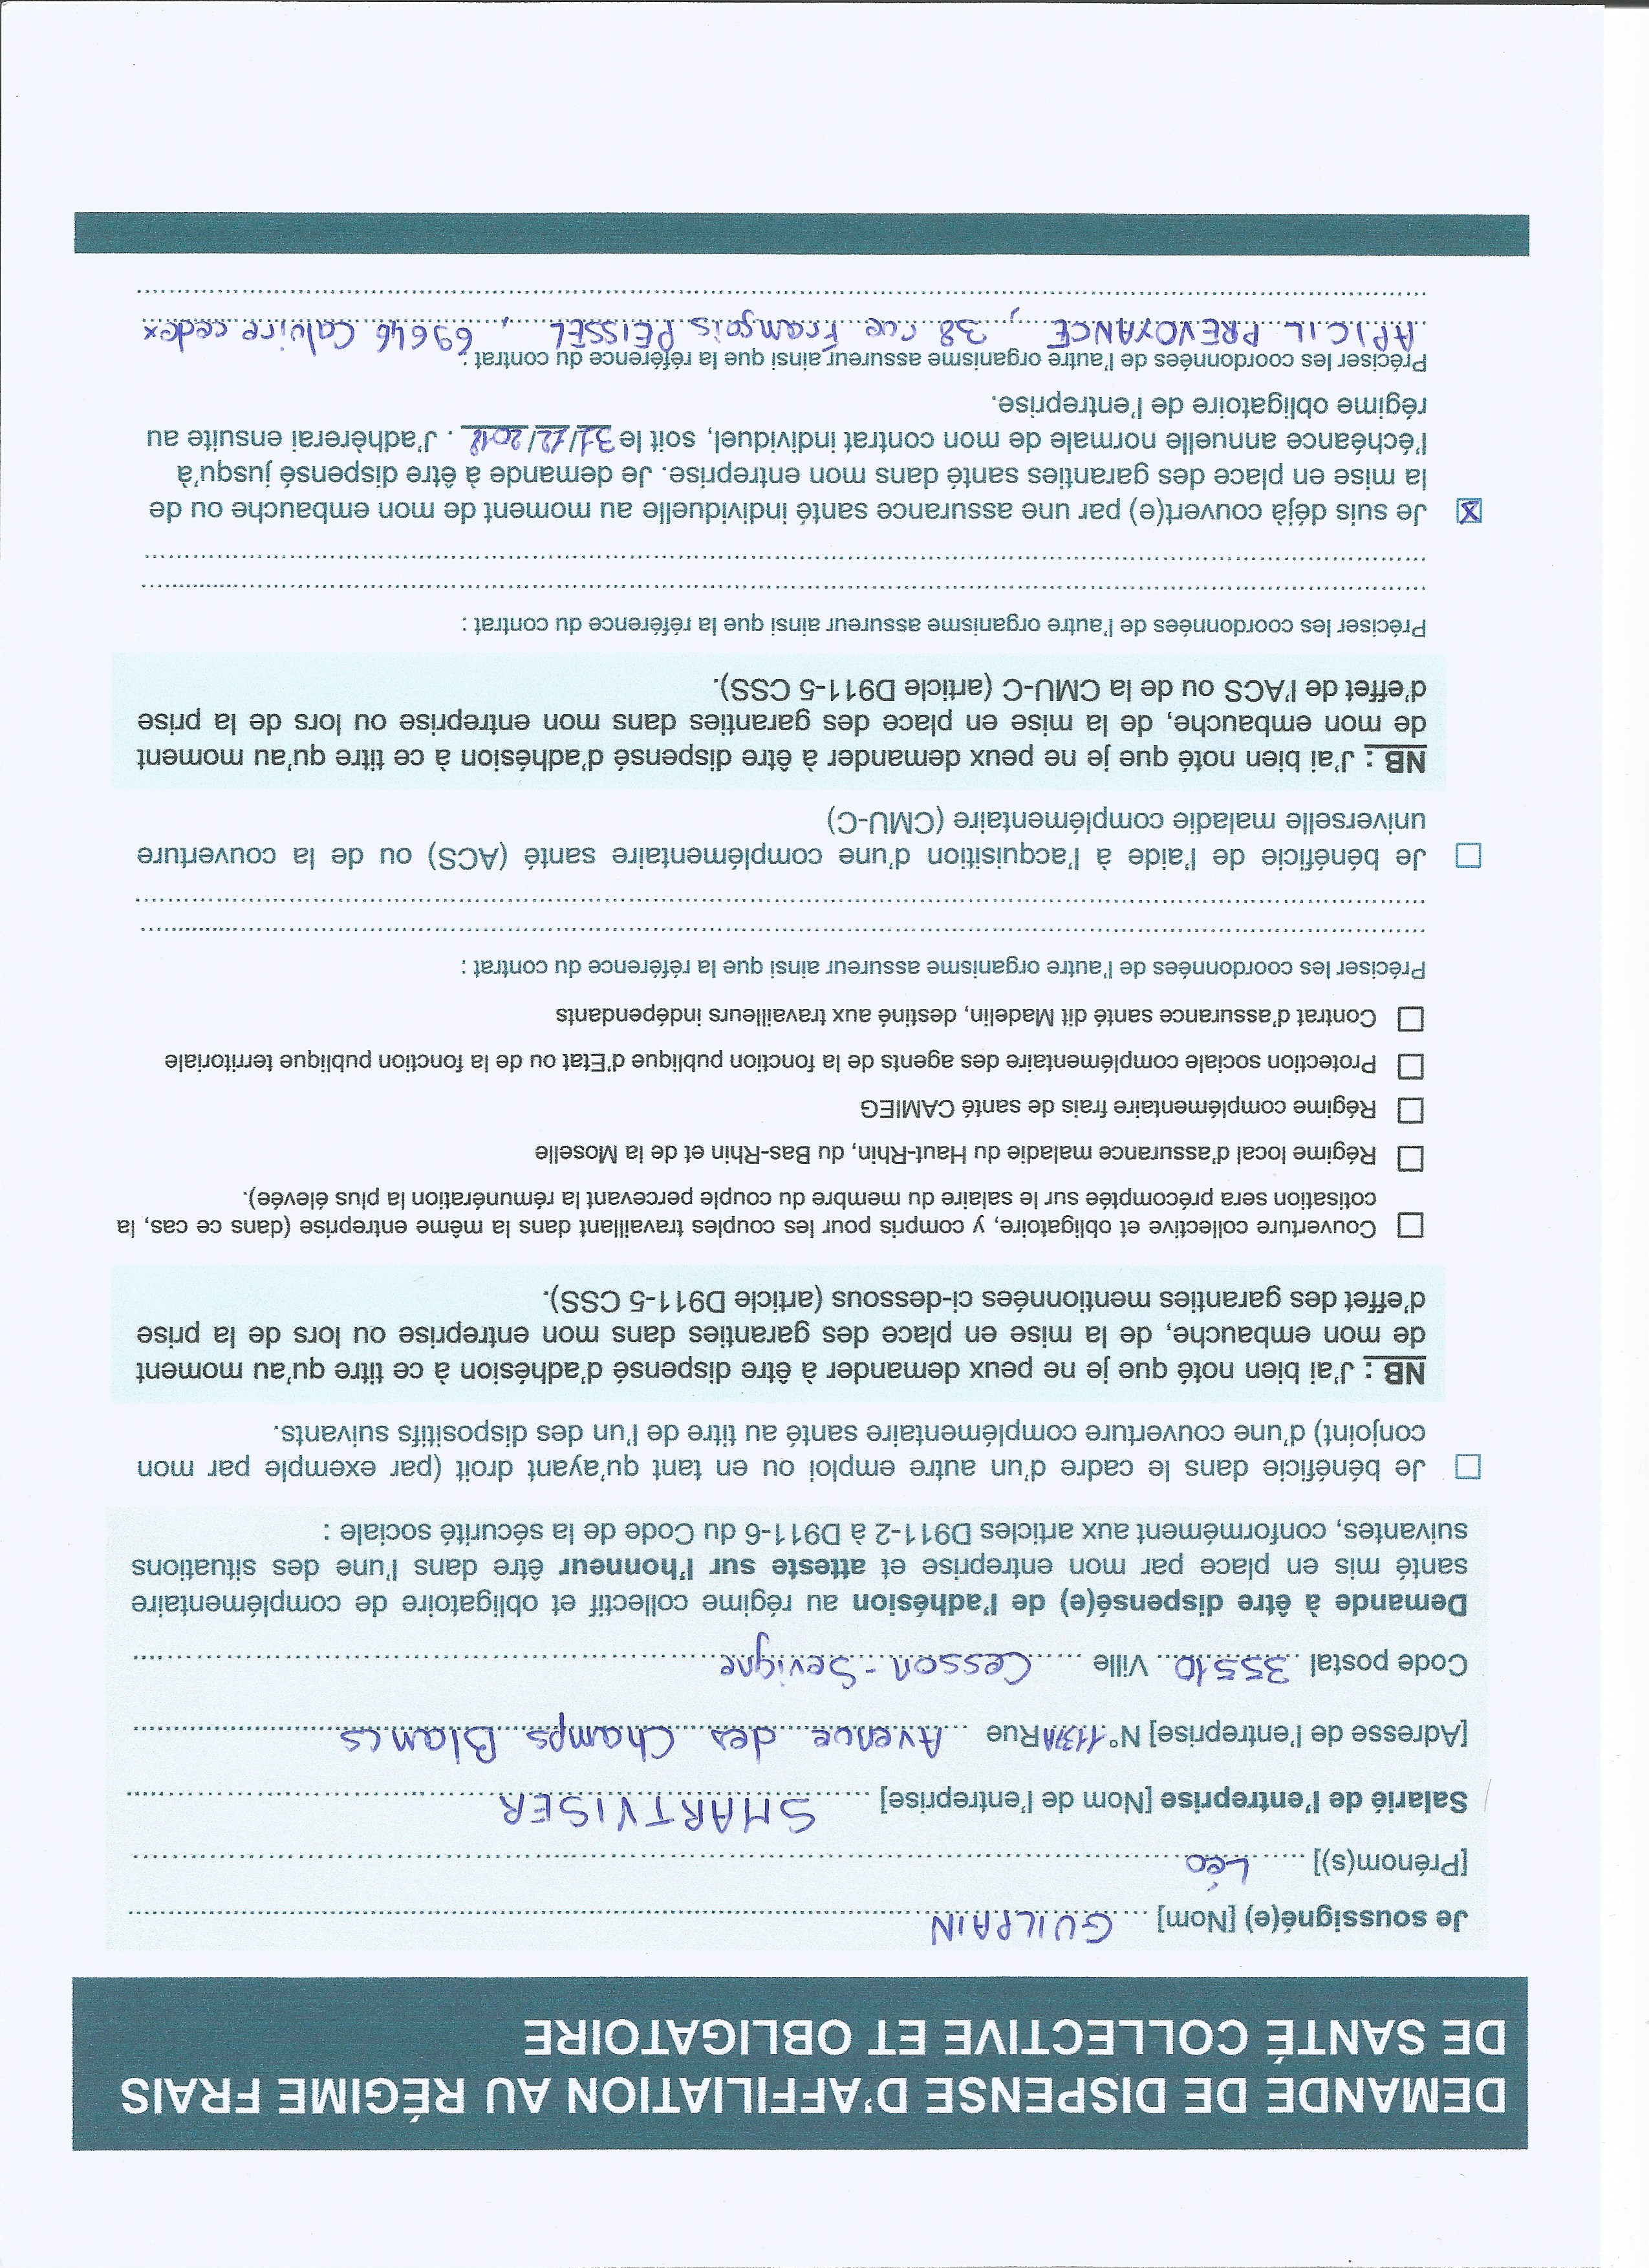 DEMANDE DE DISPENSE D'AFFILIATION AU RÉGIME FRAIS
DE SANTÉ COLLECTIVE ET OBLIGATOIRE
Je soussigné(e) [Nom] GUILPAIN
[Prénom(s)] Léo
Salarié de l'entreprise [Nom de l'entreprise] SMARTVISER
[Adresse de l'entreprise] N° 1137A Rue Avenue des Champs Blancs
Code postal 35510 Ville Cesson-Sevigne
Demande à être dispensé(e) de l'adhésion au régime collectif et obligatoire de complémentaire
santé mis en place par mon entreprise et atteste sur l'honneur être dans l'une des situations
suivantes, conformément aux articles D911-2 à D911-6 du Code de la sécurité sociale :
☐ Je bénéficie dans le cadre d'un autre emploi ou en tant qu'ayant droit (par exemple par mon
conjoint) d'une couverture complémentaire santé au titre de l'un des dispositifs suivants.
NB : J'ai bien noté que je ne peux demander à être dispensé d'adhésion à ce titre qu'au moment
de mon embauche, de la mise en place des garanties dans mon entreprise ou lors de la prise
d'effet des garanties mentionnées ci-dessous (article D911-5 CSS).
☐ Couverture collective et obligatoire, y compris pour les couples travaillant dans la même entreprise (dans ce cas, la
cotisation sera précomptée sur le salaire du membre du couple percevant la rémunération la plus élevée).
☐ Régime local d'assurance maladie du Haut-Rhin, du Bas-Rhin et de la Moselle
☐ Régime complémentaire frais de santé CAMIEG
☐ Protection sociale complémentaire des agents de la fonction publique d'Etat ou de la fonction publique territoriale
☐ Contrat d'assurance santé dit Madelin, destiné aux travailleurs indépendants
Préciser les coordonnées de l'autre organisme assureur ainsi que la référence du contrat :
☐ Je bénéficie de l'aide à l'acquisition d'une complémentaire santé (ACS) ou de la couverture
universelle maladie complémentaire (CMU-C)
NB : J'ai bien noté que je ne peux demander à être dispensé d'adhésion à ce titre qu'au moment
de mon embauche, de la mise en place des garanties dans mon entreprise ou lors de la prise
d'effet de l'ACS ou de la CMU-C (article D911-5 CSS).
Préciser les coordonnées de l'autre organisme assureur ainsi que la référence du contrat :
☒ Je suis déjà couvert(e) par une assurance santé individuelle au moment de mon embauche ou de
la mise en place des garanties santé dans mon entreprise. Je demande à être dispensé jusqu'à
l'échéance annuelle normale de mon contrat individuel, soit le 31/12/2018. J'adhèrerai ensuite au
régime obligatoire de l'entreprise.
Préciser les coordonnées de l'autre organisme assureur ainsi que la référence du contrat :
APICIL PREVOYANCE, 38 rue François PEISSEL, 69646 Caluire cedex